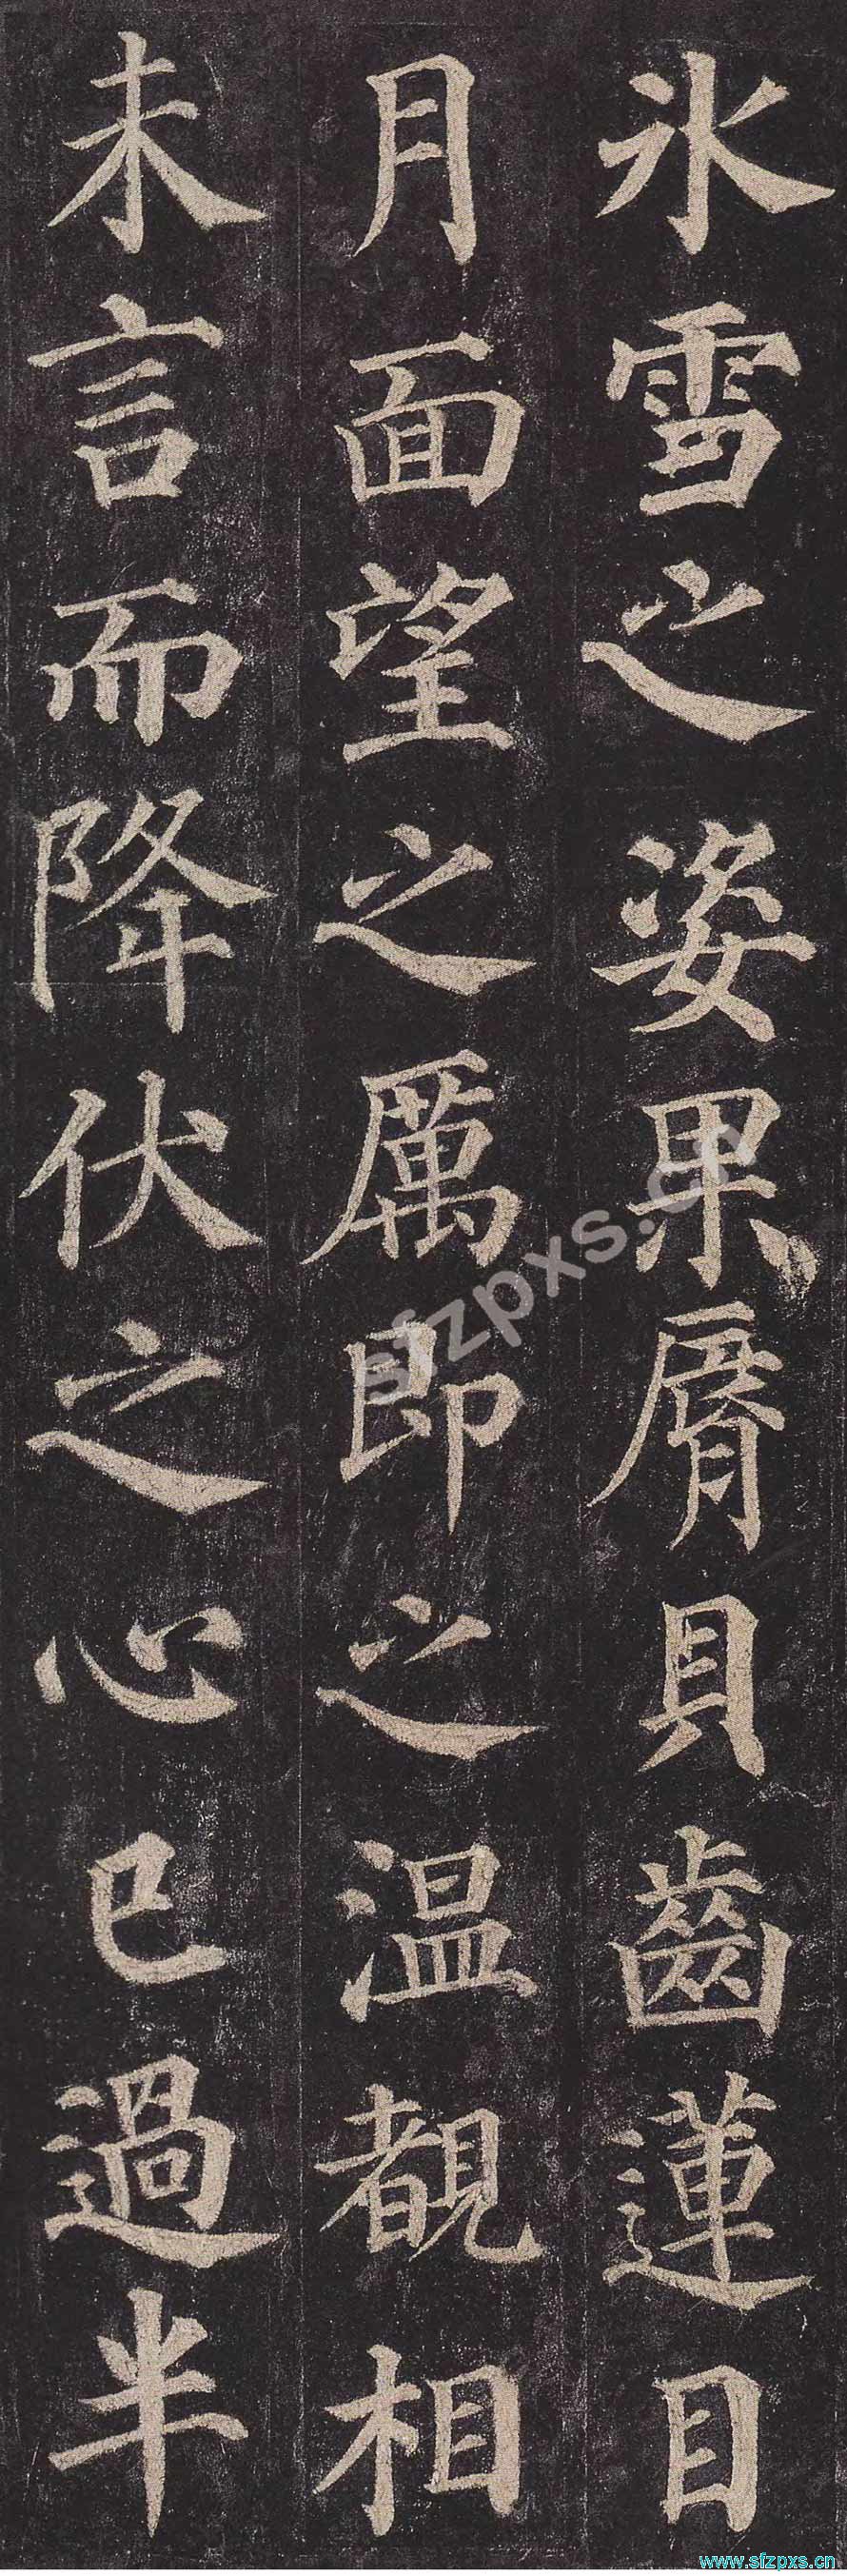 氷雪之姿果脣貝齒蓮目
月面望之厲即之温覩相
未言而降伏之心已過半
sfzpxs.cn
www.sfzpxs.cn